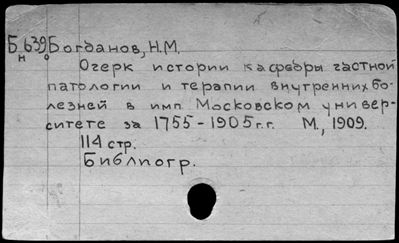 Б 639 Богданов, Н.М.
н о
Очерк истории кафедры частной
патологии и терапии внутренних бо-
лезней в имп. Московском универ-
ситете за 1755-1905 г.г. М., 1909.
114 стр.
Библиогр.